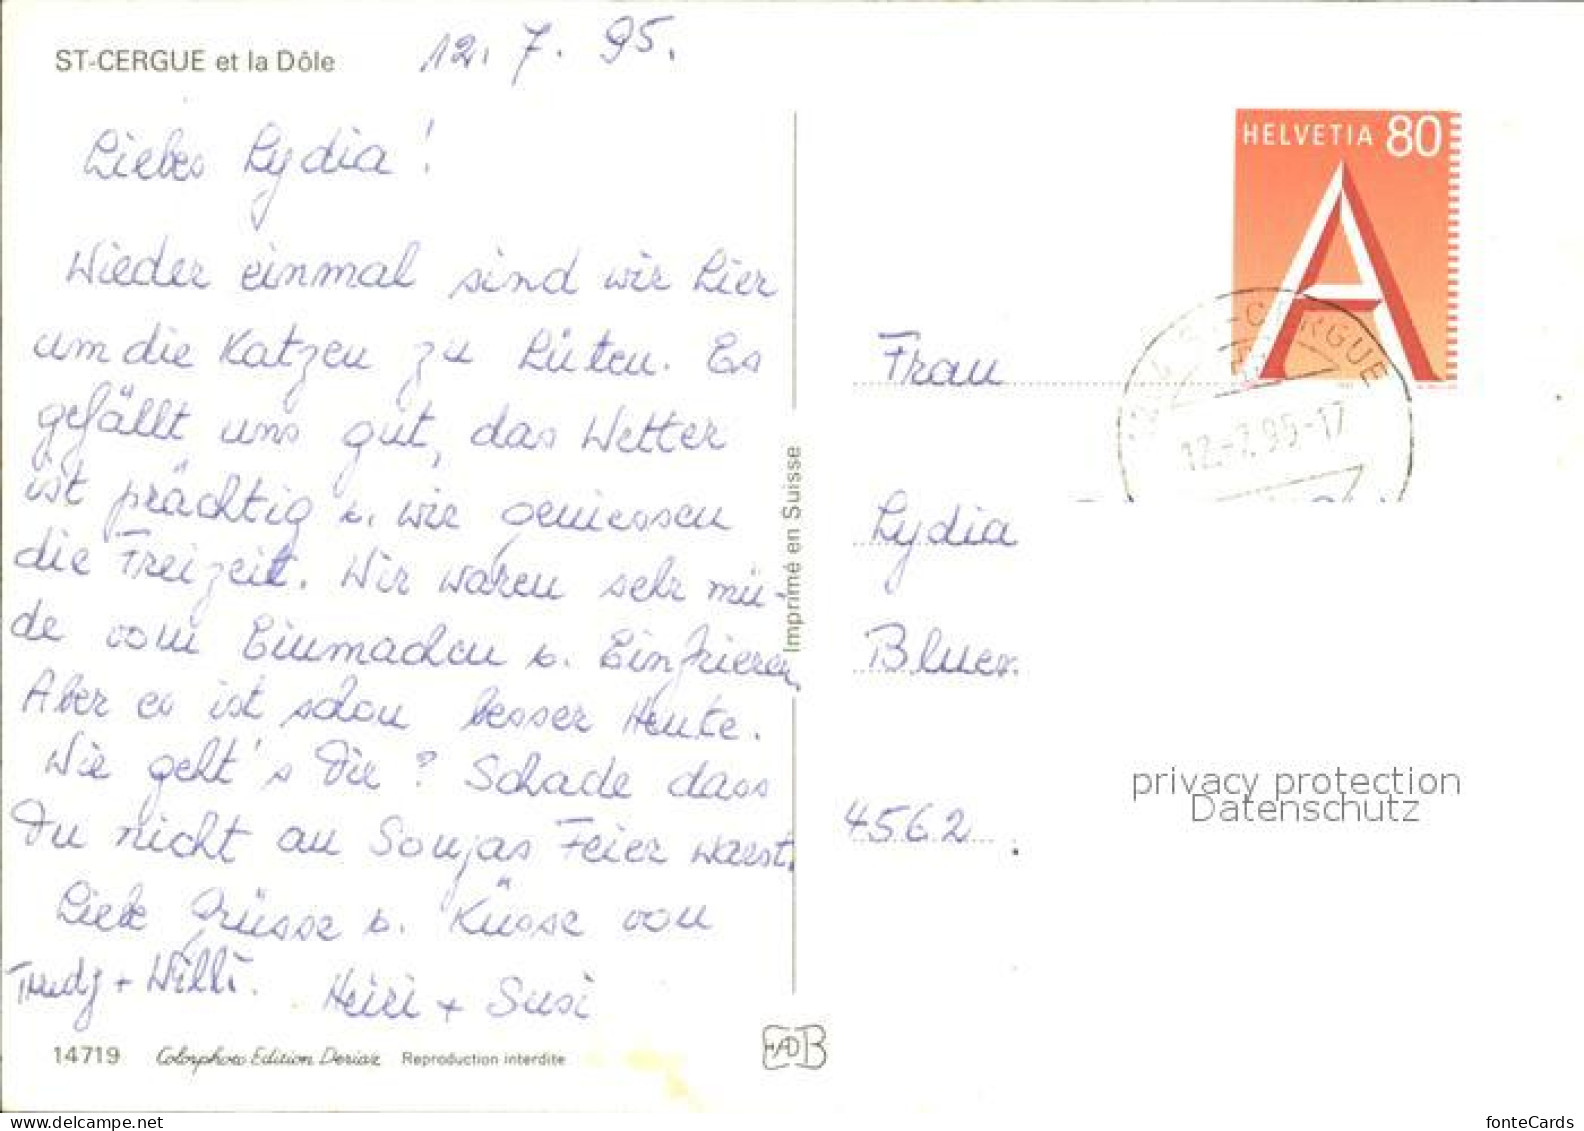 ST-CERGUE et la Dôle
12. 7. 95.
Liebes Lydia!
Wieder einmal sind wir hier
um die Katzen zu hüten. Es
gefällt uns gut, das Wetter
ist prächtig u. wir geniessen
die Freizeit. Wir waren sehr mü-
de vom Einmachen u. Einfrieren.
Aber es ist schon besser Heute.
Wie geht's Dir? Schade dass
Du nicht an Sonjas Feier warst.
Liebe Grüsse u. Küsse von
Trudy + Willi. Heiri + Susi
14719 Colorphoto Edition Deriaz Reproduction interdite
Imprimé en Suisse
HELVETIA 80
A
ST-CERGUE
12.-7.95-17
Frau
Lydia
4562
privacy protection
Datenschutz
fonteCards